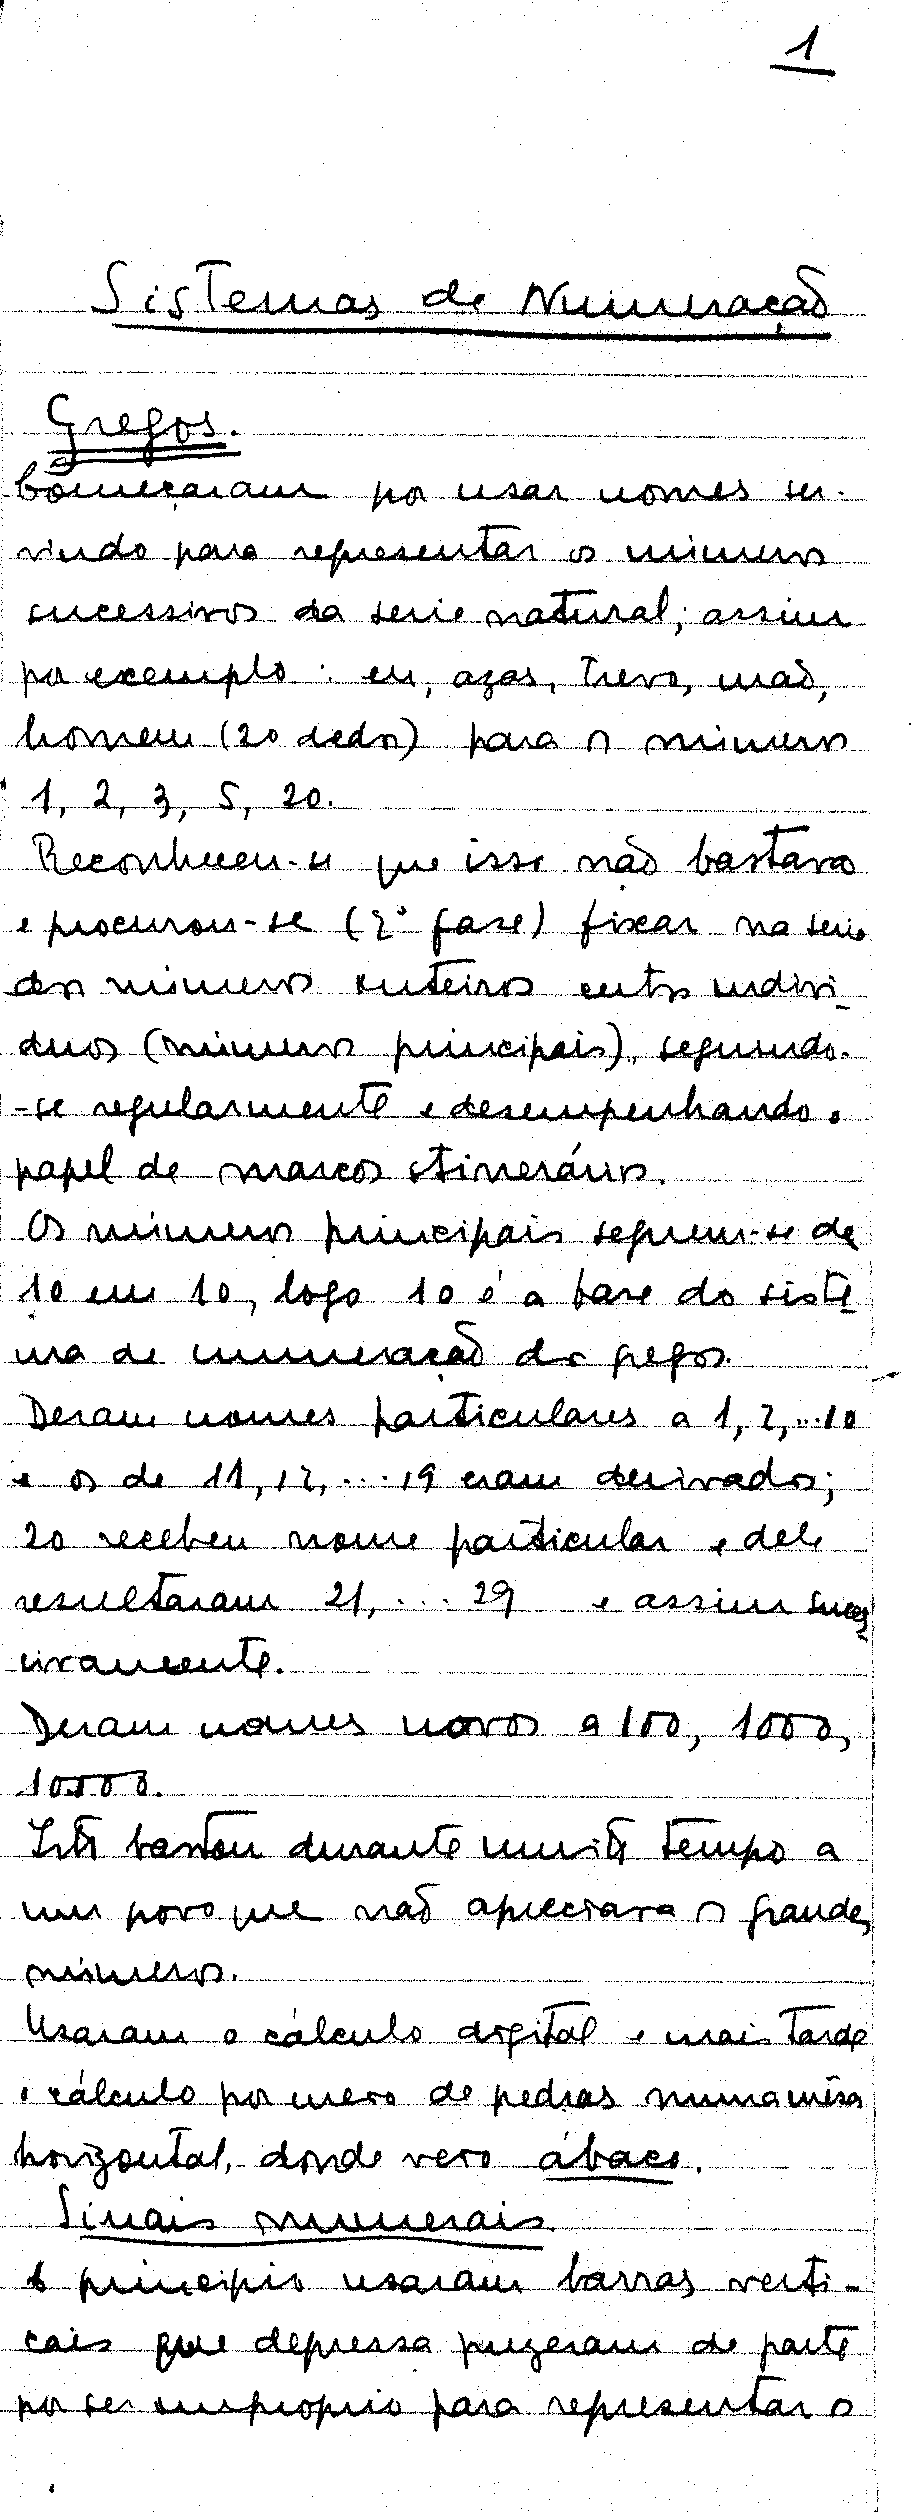 1
Sistemas de Numeração
Gregos.
Começaram por usar nomes ser-
vindo para representar os números
sucessivos da serie natural; assim
por exemplo: eu, azas, trevo, mão,
homem (20 dedos) para os números
1, 2, 3, 5, 20.
Reconheceu-se que isso não bastava
e procurou-se (2ª fase) fixar na serie
dos números inteiros certos indiví-
duos (números principais), seguindo-
-se regularmente e desempenhando o
papel de marcos itinerários.
Os números principais seguem-se de
10 em 10, logo 10 é a base do siste
ma de numeração dos gregos.
Deram nomes particulares a 1, 2, ...10
e os de 11, 12, ...19 eram derivados;
20 recebeu nome particular e dele
resultaram 21, ... 29 e assim suces
sivamente.
Deram nomes novos a 100, 1000,
10000.
Isto bastou durante muito tempo a
um povo que não apreciava os grandes
números.
Usaram o cálculo digital e mais tarde
o cálculo por meio de pedras numa mêsa
horizontal, donde veio ábaco.
Sinais numerais.
A principio usaram barras verti-
cais que depressa puzeram de parte
por ser improprio para representar os